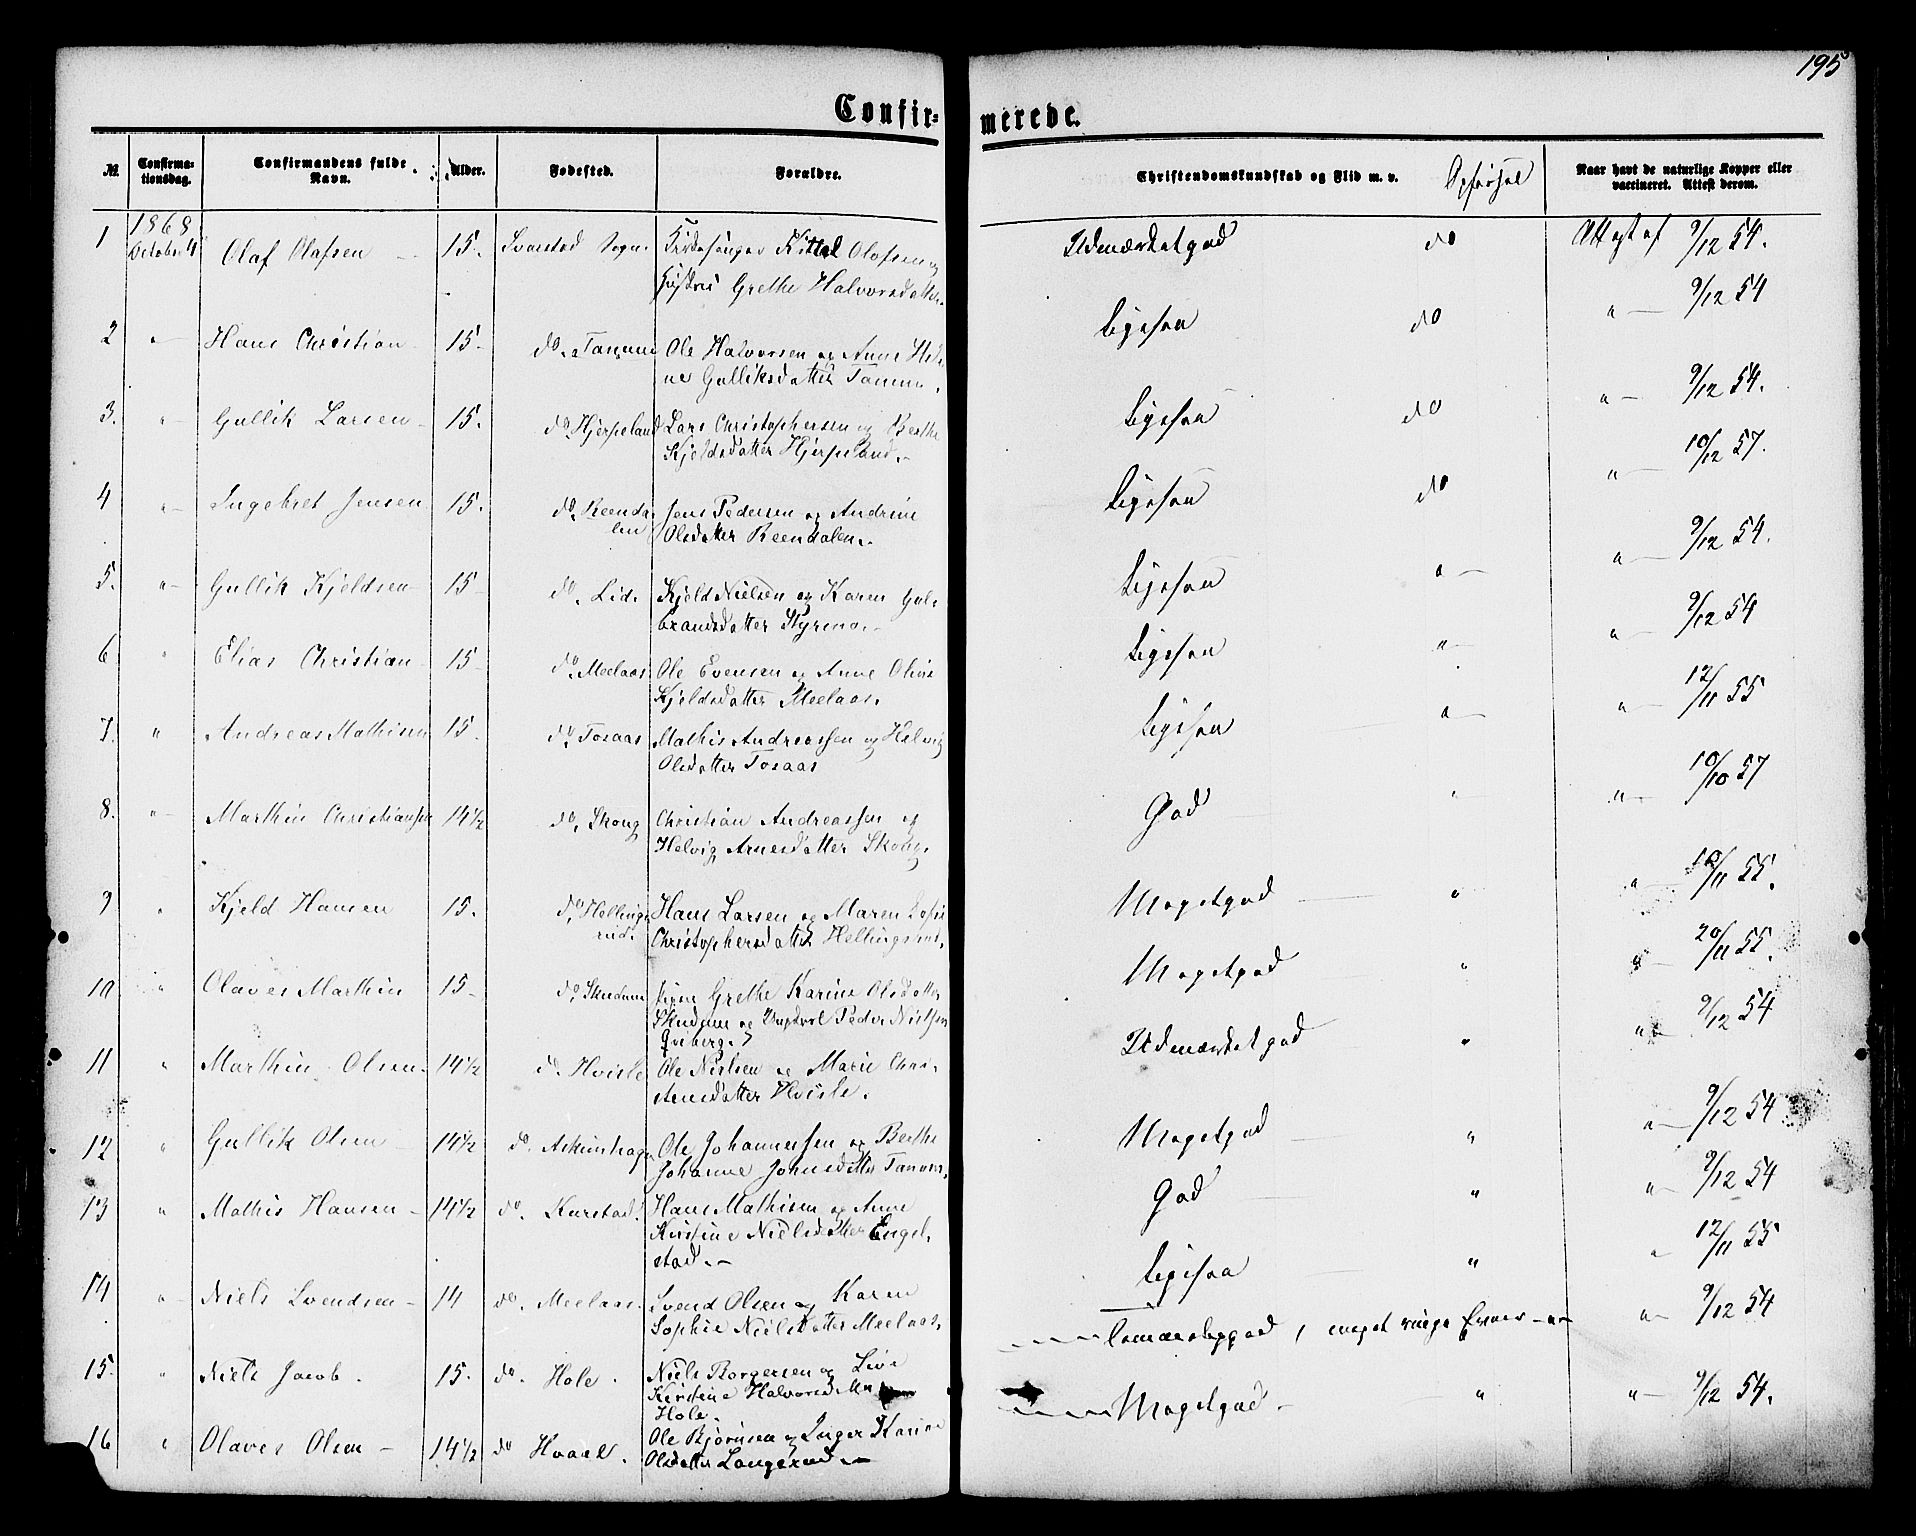 195
Confirmerede.
№ Confirmationsdag. Confirmandens fulde Navn. Alder. Fødested. Forældre. Christendomskundskab og Flid m. v. Opførsel Naar havt de naturlige Kopper eller vaccineret. Attest derom.
1 1868 October 4 Olaf Olafsen 15. Svarstad Sogn Kirkesanger Kittel Olafsen og Hustru Grethe Halvorsdatter Udmærketgod do Attest af 9/12 54.
2 " Hans Christian 15 do. Tanum Ole Halvorsen og Anne Helene Gulliksdatter Ligesaa do " 9/12 54
3. " Gullik Larsen 15. do. Hjerpeland Lars Christophersen og Berthe Kjeldsdatter Hjerpeland. Ligesaa do " 9/12 54.
4 " Ingebret Jensen 15. do. Reendalen Jens Pedersen og Andrine Olsdatter Reendalen. Ligesaa do " 10/12 57.
5. " Gullik Kjeldsen 15 do. Lid. Kjeld Nielsen og Karen Gulbrandsdatter Styrmo. Ligesaa " " 9/12 54.
6. " Elias Christian 15 do. Meelaas Ole Evensen og Anne Olive Kjeldsdatter Meelaas. Ligesaa " " 9/12 54
7. " Andreas Mathisen 15. do. Tosaas Mathis Andreassen og Helvig Olsdatter Tosaas Ligesaa " " 12/11 55
8. " Marthin Christiansen 14 1/2 do. Skoug Christian Andreassen og Helvig Arnesdatter Skoug. God " " 10/10 57
9 " Kjeld Hansen 15. do. Hellingsrud. Hans Larsen og Maren Christophersdatter Hellingsrud. Megetgod " " 11 55.
10 " Olaves Marthin 15 do. Skudum Pige Grethe Karine Olsdatter Skudum og Peder Nielsen Megetgod " " 20/11 55.
11 " Marthin Olsen 14 1/2 do. Hvisle Ole Nielsen og Marie Hvisle. Udmærketgod " " 9/12 54
12 " Gullik Olsen 14 1/2 do. Ole Johannessen og Berthe Johanne Megetgod " " 9/12 54
13 " Mathis Hansen 14 1/2 do. Karstad. Hans Mathisen og Anne Kirstine Nielsdatter Engelstad. God " " 9/12 54
14 " Niels Svendsen 14 do. Meelaas. Svend Olsen og Karen Sophie Nielsdatter Meelaas. Ligesaa " " 12/11 55
15. " Niels Jacob. 15. do. Hole. Niels Borgersen og Live Kirstine Hole. meget ringe Evner " 9/12 54
16 " Olaves Olsen 14 1/2 do Hvaal. Ole Bjørnsen og Inger Karine Olsdatter Langerud. Megetgod " " 9/12 54.